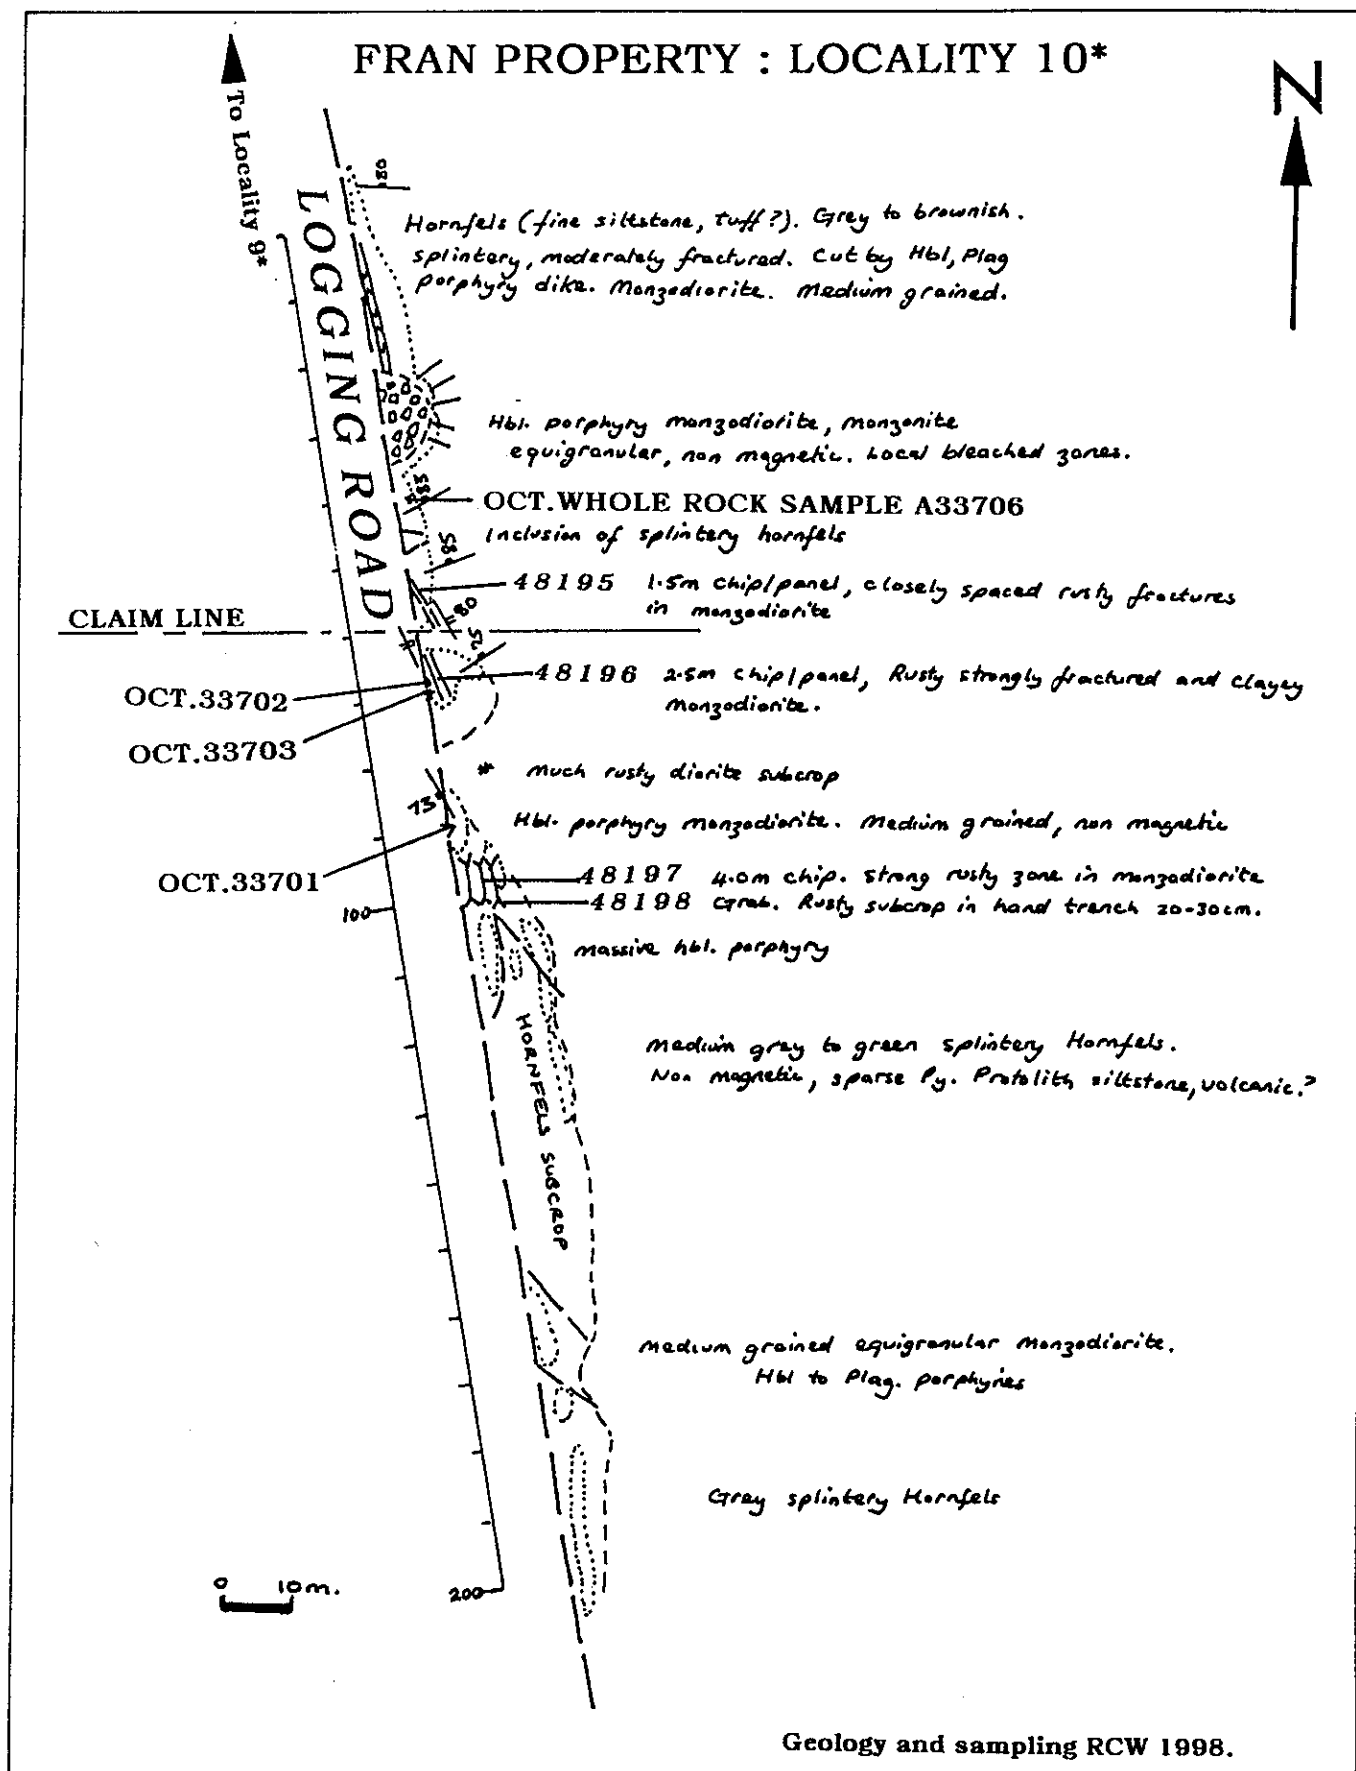 FRAN PROPERTY : LOCALITY 10*
N
To Locality 9*
LOGGING ROAD
80
Hornfels (fine siltstone, tuff?). Grey to brownish.
splintery, moderately fractured. Cut by Hbl, Plag
porphyry dike. Monzodiorite. Medium grained.
Hbl. porphyry monzodiorite, monzonite
equigranular, non magnetic. Local bleached zones.
85
OCT.WHOLE ROCK SAMPLE A33706
Inclusion of splintery hornfels
85
48195 1.5m chip/panel, closely spaced rusty fractures
in monzodiorite
80
CLAIM LINE
*
75
48196 2.5m chip/panel, Rusty strongly fractured and clayey
monzodiorite.
OCT.33702
OCT.33703
* Much rusty diorite subcrop
73
Hbl. porphyry monzodiorite. Medium grained, non magnetic
OCT.33701
48197 4.0m chip. Strong rusty zone in monzodiorite
48198 Grab. Rusty subcrop in hand trench 20-30cm.
100
massive hbl. porphyry
HORNFELS SUBCROP
Medium grey to green splintery Hornfels.
Non magnetic, sparse Py. Protolith siltstone, volcanic.?
Medium grained equigranular Monzodiorite.
Hbl to Plag. porphyries
Grey splintery Hornfels
0 10m.
200
Geology and sampling RCW 1998.